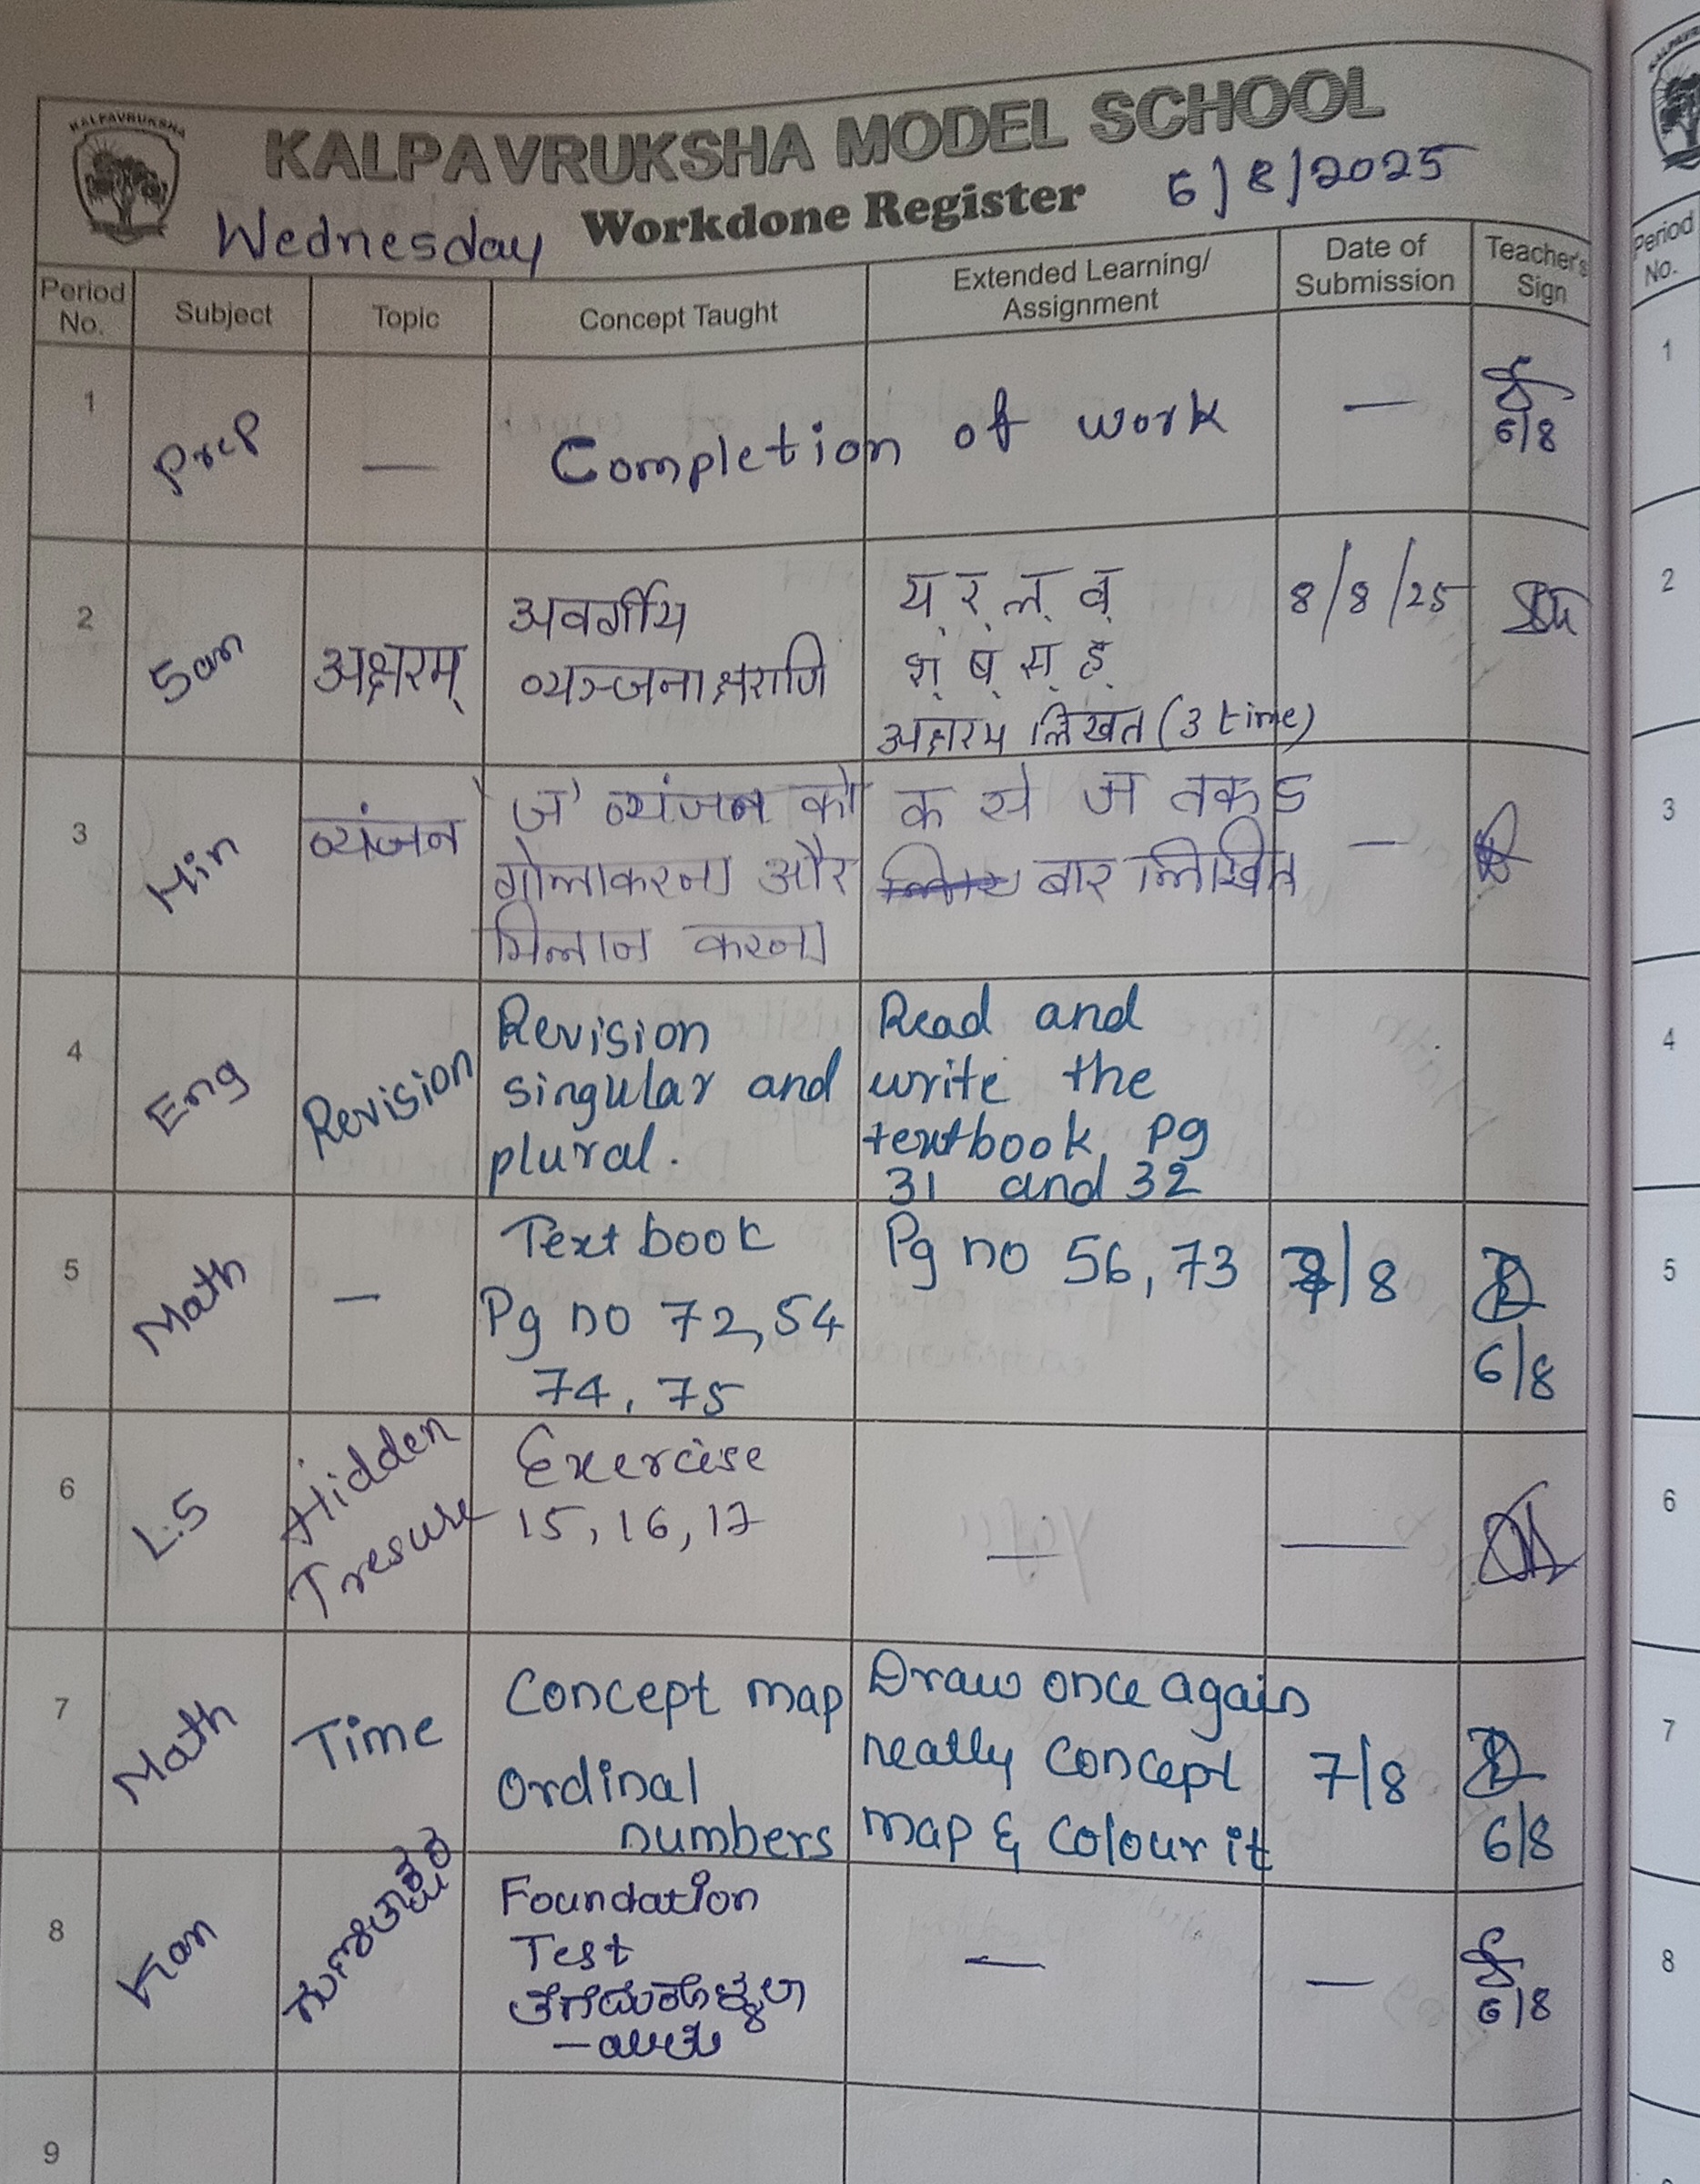 KALPAVRUKSHA
KALPAVRUKSHA MODEL SCHOOL
Wednesday Workdone Register 6/8/2025
Period No. Subject Topic Concept Taught Extended Learning/ Assignment Date of Submission Teacher's Sign
1 Prep — Completion of work — 6/8
2 San अक्षरम्
अवर्गीय
व्यञ्जनाक्षराणि
य् र् ल् व्
श् ष् स् ह्
अक्षरम लिखत (3 time)
8/8/25
3 Hin व्यंजन
'ज' व्यंजन को
गोलाकरना और
मिलान करना
क से ज तक 5
बार लिखित
—
4 Eng Revision
Revision
singular and
plural.
Read and
write the
textbook pg
31 and 32
5 Math —
Textbook
Pg no 72, 54
74, 75
Pg no 56, 73
7/8
6/8
6 L.S Hidden
Tresure
Exercise
15, 16, 17
—
—
7 Math Time
Concept map
Ordinal
numbers
Draw once again
neatly concept
map & colour it
7/8
6/8
8 Kan ಗುಣಿತಾಕ್ಷರ
Foundation
Test
ತೆಗೆದುಕೊಳ್ಳಲಾ
–ಯಿತು
—
—
6/8
9
Period
No.
1
2
3
4
5
6
7
8